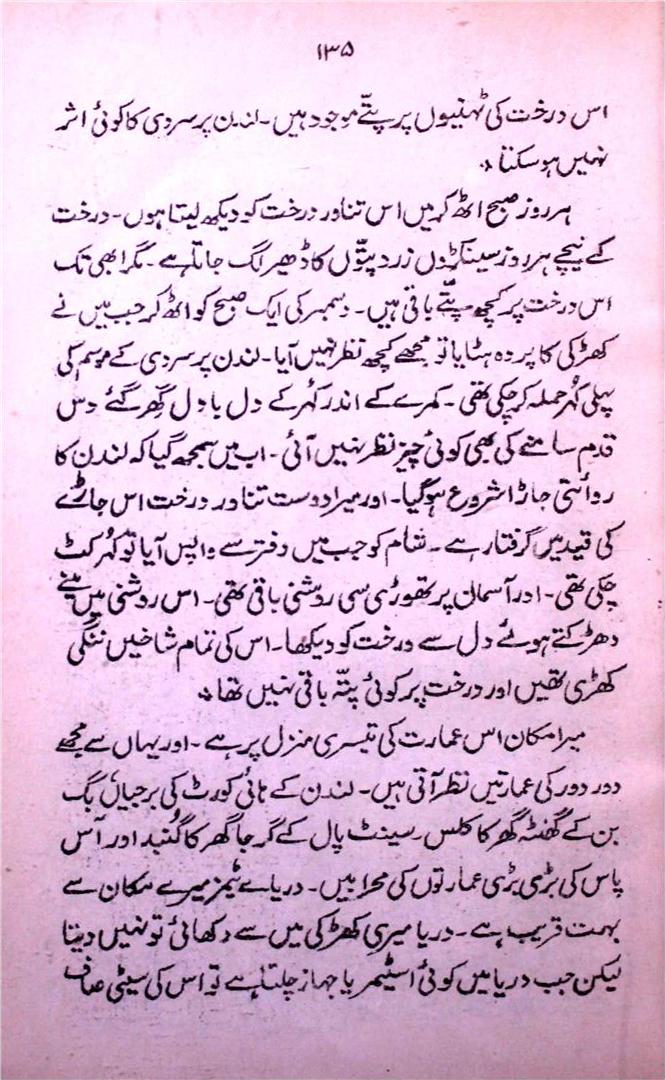 ۱۳۵
اس درخت کی ٹہنیوں پر پتّے موجود ہیں۔ لندن پر سردی کا کوئی اثر
نہیں ہو سکتا ؞
ہر روز صبح اٹھ کر میں اس تناور درخت کو دیکھ لیتا ہوں۔ درخت
کے نیچے ہر روز سینکڑوں زرد پتّوں کا ڈھیر لگ جاتا ہے۔ مگر ابھی تک
اس درخت پر کچھ پتّے باقی ہیں۔ دسمبر کی ایک صبح کو اٹھ کر جب میں نے
کھڑکی کا پردہ ہٹایا تو مجھے کچھ نظر نہیں آیا۔ لندن پر سردی کے موسم کی
پہلی کُہر حملہ کر چکی تھی۔ کمرے کے اندر کُہر کے دل بادل گھر گئے دس
قدم سامنے کی بھی کوئی چیز نظر نہیں آئی۔ اب میں سمجھ گیا کہ لندن کا
روائتی جاڑا شروع ہو گیا۔ اور میرا دوست تناور درخت اس جاڑے
کی قید میں گرفتار ہے۔ شام کو جب میں دفتر سے واپس آیا تو کُہر کٹ
چکی تھی۔ اور آسمان پر تھوڑی سی روشنی باقی تھی۔ اس روشنی میں مَینے
دھڑکتے ہوئے دل سے درخت کو دیکھا۔ اس کی تمام شاخیں ننگی
کھڑی تھیں اور درخت پر کوئی پتّہ باقی نہیں تھا ؞
میرا مکان اس عمارت کی تیسری منزل پر ہے۔ اور یہاں سے مجھے
دور دور کی عمارتیں نظر آتی ہیں۔ لندن کے ہائی کورٹ کی برجیاں بگ
بن کے گھنٹہ گھر کا کلس۔ سینٹ پال کے گرجا گھر کا گنبد اور آس
پاس کی بڑی بڑی عمارتوں کی محرابیں۔ دریائے ٹیمز میرے مکان سے
بہت قریب ہے۔ دریا میری کھڑکی میں سے دکھائی تو نہیں دیتا
لیکن جب دریا میں کوئی اسٹیمر یا جہاز چلتا ہے تو اس کی سیٹی صاف